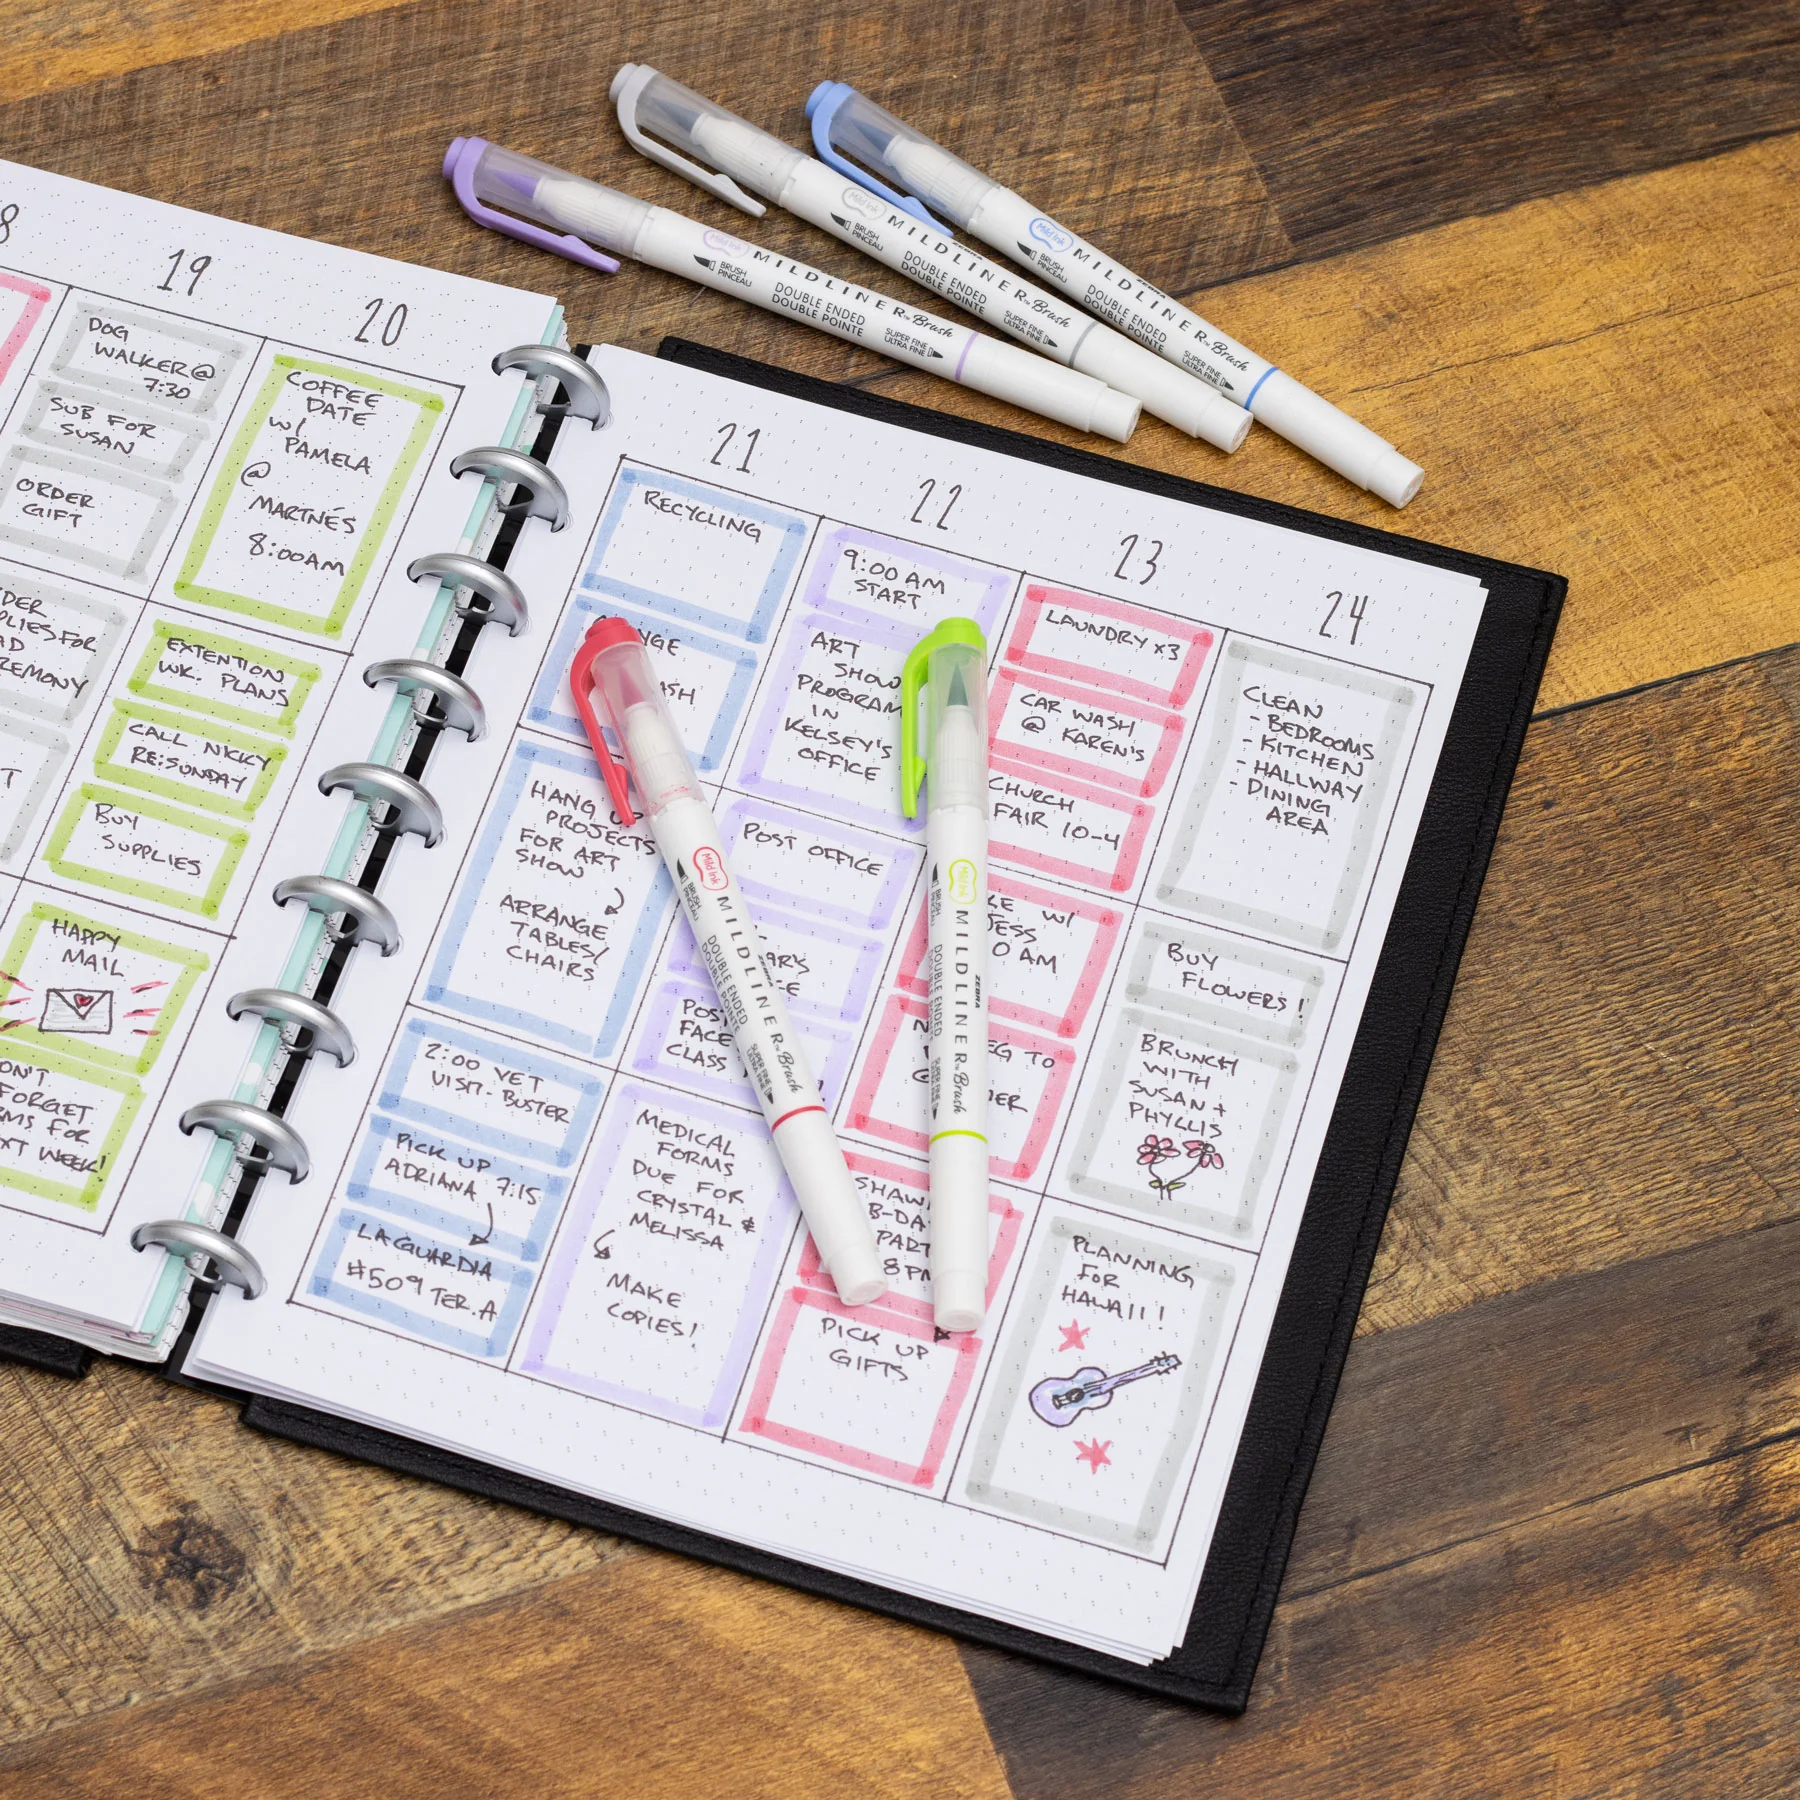 8
19
DOG
WALKER@
7:30
SUB FOR
SUSAN
ORDER
GIFT
20
COFFEE
DATE
W/
PAMELA
@
MARTNÉS
8:00AM
EXTENTION
WK. PLANS
CALL NICKY
RE:SUNDAY
BUY
SUPPLIES
HAPPY
MAIL
FORGET
FOR
WEEK!
21
RECYCLING
HANG UP
PROJECTS
FOR ART
SHOW
ARRANGE
TABLES/
CHAIRS
2:00 VET
VISIT-BUSTER
PICK UP
ADRIANA 7:15
LAGUARDIA
#509 TER.A
22
9:00 AM
START
ART
SHOW
PROGRAM
IN
KELSEY'S
OFFICE
POST OFFICE
CLASS
MEDICAL
FORMS
DUE FOR
CRYSTAL &
MELISSA
MAKE
COPIES!
23
LAUNDRY x3
CAR WASH
@ KAREN'S
CHURCH
FAIR 10-4
W/
AM
TO
PICK UP
GIFTS
24
CLEAN
- BEDROOMS
- KITCHEN
- HALLWAY
- DINING
AREA
BUY
FLOWERS!
BRUNCH
WITH
SUSAN +
PHYLLIS
PLANNING
FOR
HAWAII!
Mild Ink
BRUSH
PINCEAU
ZEBRA
MILDLINER™ Brush
DOUBLE ENDED
DOUBLE POINTE
SUPER FINE
ULTRA FINE
Mild Ink
BRUSH
PINCEAU
ZEBRA
MILDLINER™ Brush
DOUBLE ENDED
DOUBLE POINTE
SUPER FINE
ULTRA FINE
Mild Ink
BRUSH
PINCEAU
ZEBRA
MILDLINER™ Brush
DOUBLE ENDED
DOUBLE POINTE
SUPER FINE
ULTRA FINE
Mild Ink
BRUSH
PINCEAU
ZEBRA
MILDLINER™ Brush
DOUBLE ENDED
DOUBLE POINTE
SUPER FINE
ULTRA FINE
Mild Ink
BRUSH
PINCEAU
ZEBRA
MILDLINER™ Brush
DOUBLE ENDED
DOUBLE POINTE
SUPER FINE
ULTRA FINE